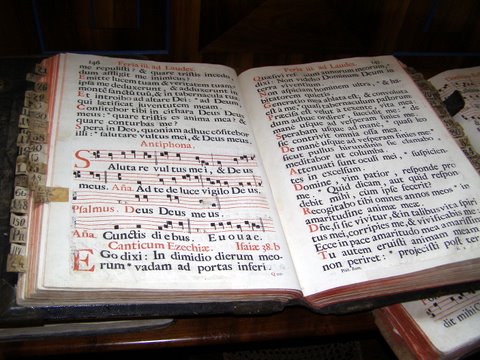 146
Feria iii. ad Laudes.
me repulisti? & quare tristis incedo,
dum affligit me inimicus?
Emitte lucem tuam, & veritatem tuam:
ipsa me deduxerunt, & adduxerunt in
montē sanctū tuū, & in tabernacula tua.
Et introibo ad altare Dei: * ad Deum,
qui lætificat juventutem meam.
Confitebor tibi in cithara, Deus, Deus
meus: * quare tristis es anima mea, &
quare conturbas me?
Spera in Deo, quoniam adhuc cōfitebor
illi: * salutare vultus mei, & Deus meus.
Antiphona.
Salutare vultus mei, & Deus
meus. Aña. Ad te de luce vigilo Deus.
Psalmus. Deus Deus meus.
Aña Cunctis diebus. Euouae.
Canticum Ezechiæ. Isaiæ 38. b
Ego dixi: In dimidio dierum meo-
rum * vadam ad portas inferi.
Feria iii. ad Laudes.
Quæsivi residuum annorum meorum, *
non videbo Dominum Deum in
terra viventium.
Non aspiciam hominem ultra, * & ha-
bitatorem quietis.
Generatio mea ablata est, & convoluta
est a me, * quasi tabernaculum pastorum.
Præcisa est velut a texente, vita mea:
dum adhuc ordirer, succidit me: * de
mane usque ad vesperam finies me.
Sperabam usque ad mane, * quasi leo
sic contrivit omnia ossa mea.
De mane usque ad vesperam finies me: *
sicut pullus hirundinis sic clamabo,
meditabor ut columba.
Attenuati sunt oculi mei, * suspicien-
tes in excelsum.
Domine, vim patior, responde pro
me. * Quid dicam, aut quid respon-
debit mihi, cùm ipse fecerit?
Recogitabo tibi omnes annos meos * in
amaritudine animæ meæ.
Dñe, si sic vivitur, & in talibus vita spiri-
tus mei, corripies me, & vivificabis me. *
Ecce in pace amaritudo mea amarissima.
Tu autem eruisti animam meam ut
non periret: * projecisti post ter-